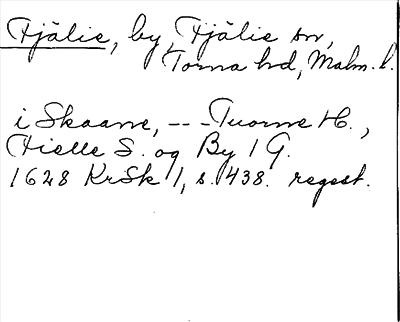 Fjälie, by, Fjälie sn,
Torna hd, Malm. l.
i Skaane, -- - Tuorne H.,
Fielle S. og By 1 G.
1628 KrSk 1, s. 438. regest.